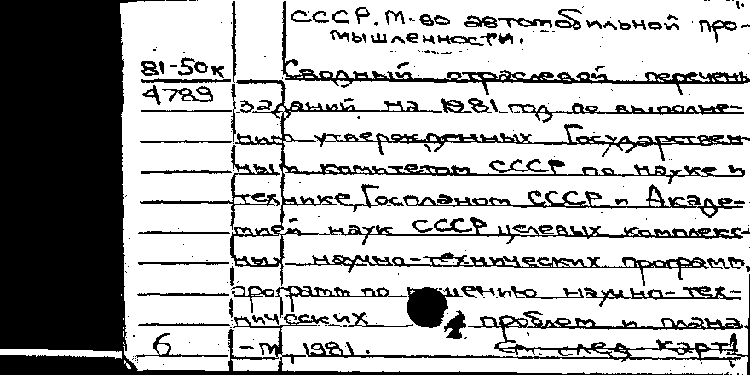 СССР. М-во автомобильной про-
мышленности.
81-50к Сводный отраслевой перечень
4789 заданий на 1981 год по выполне-
нию утвержденных Государствен-
ным комитетом СССР по науке и
технике, Госпланом СССР и Акаде-
мией наук СССР целевых комплекс-
ных научно-технических программ,
программ по решению научно-тех-
нических проблем и плана
6 -м, 1981. См. след. карт.